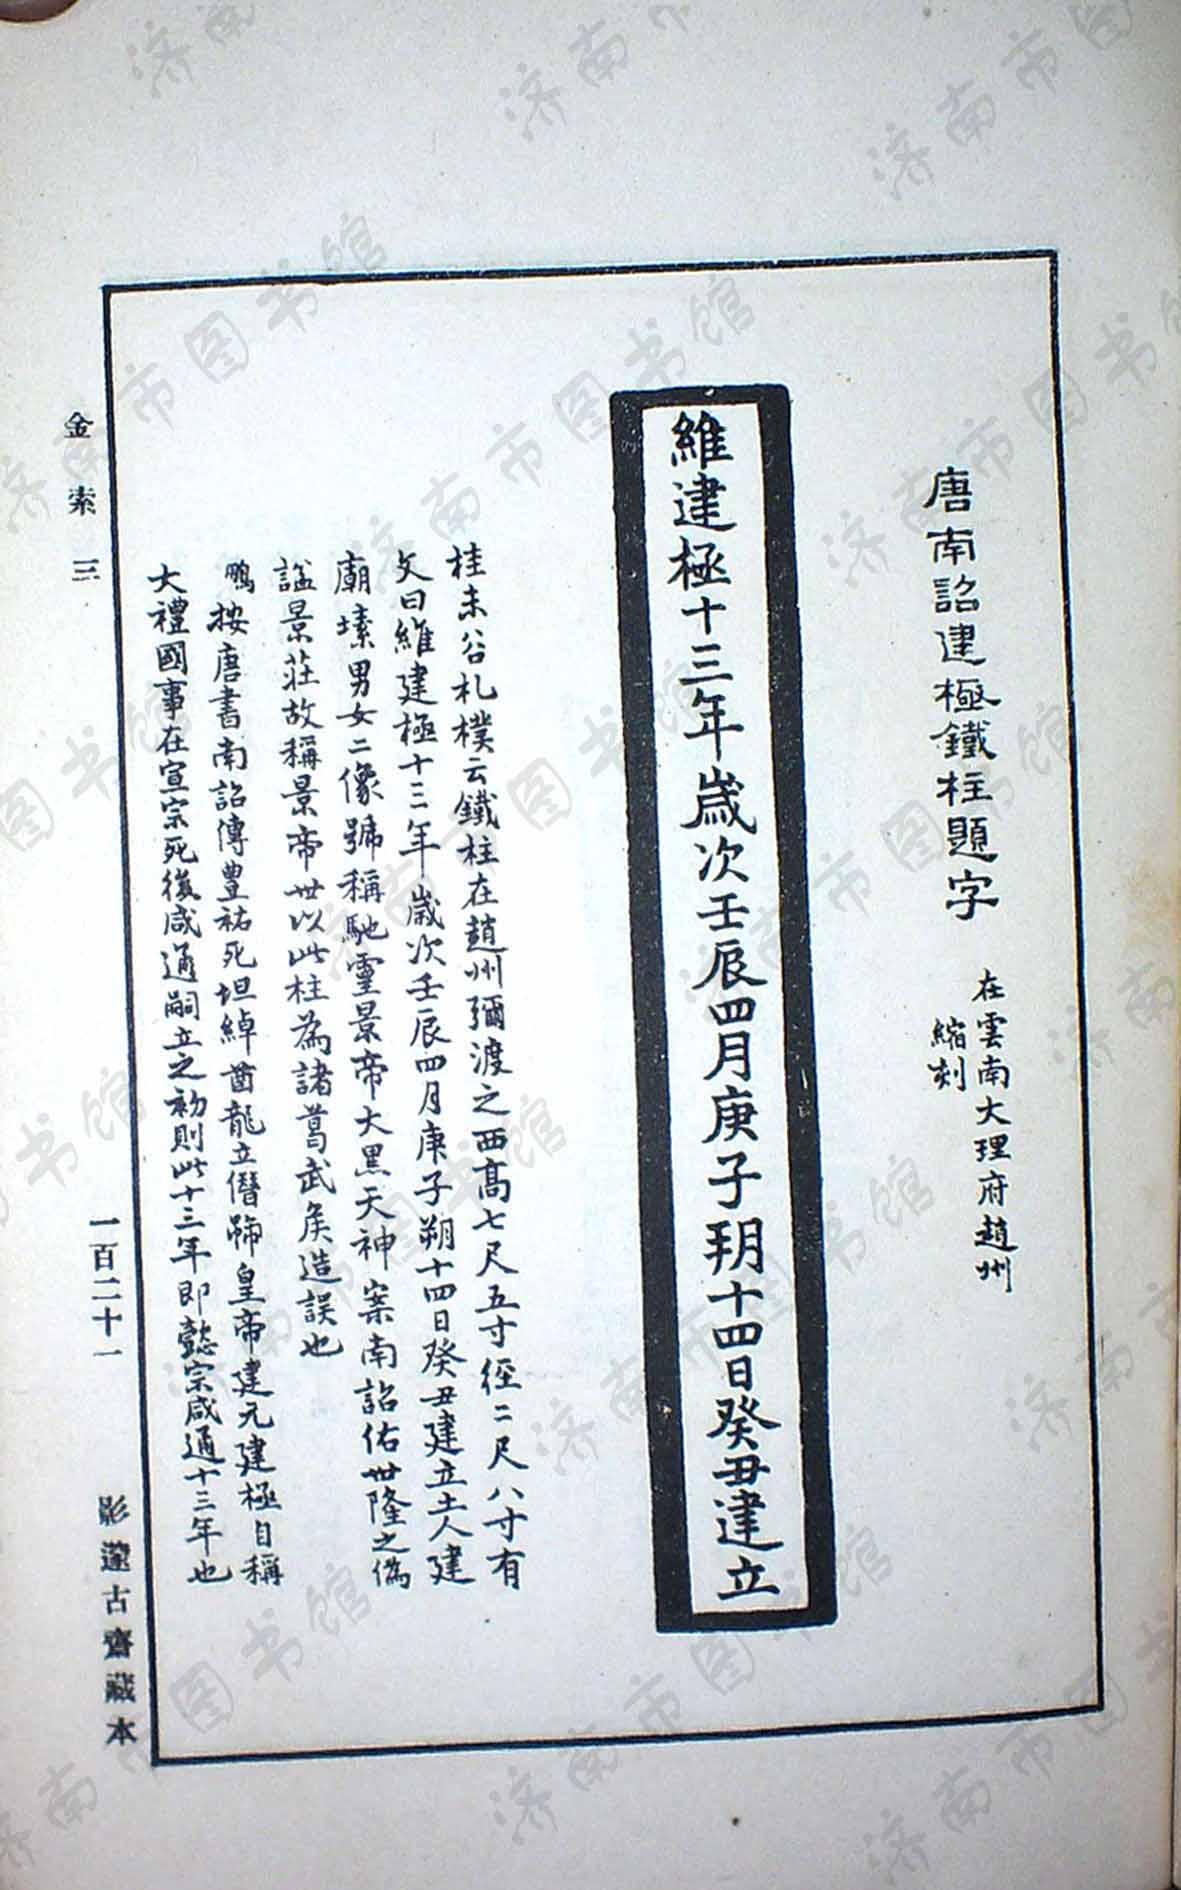 唐南詔建極鐵柱題字
在雲南大理府趙州
縮刻
維建極十三年歲次壬辰四月庚子朔十四日癸丑建立
桂未谷札樸云鐵柱在趙州彌渡之西高七尺五寸徑二尺八寸有
文曰維建極十三年歲次壬辰四月庚子朔十四日癸丑建立土人建
廟塐男女二像號稱馳靈景帝大黑天神案南詔佑世隆之偽
諡景莊故稱景帝世以此柱為諸葛武矦造誤也
鵬按唐書南詔傳豐祐死坦綽酋龍立僭號皇帝建元建極自稱
大禮國事在宣宗死後咸通嗣立之初則此十三年即懿宗咸通十三年也
金索三
一百二十一
影邃古齋藏本
济南市图书馆